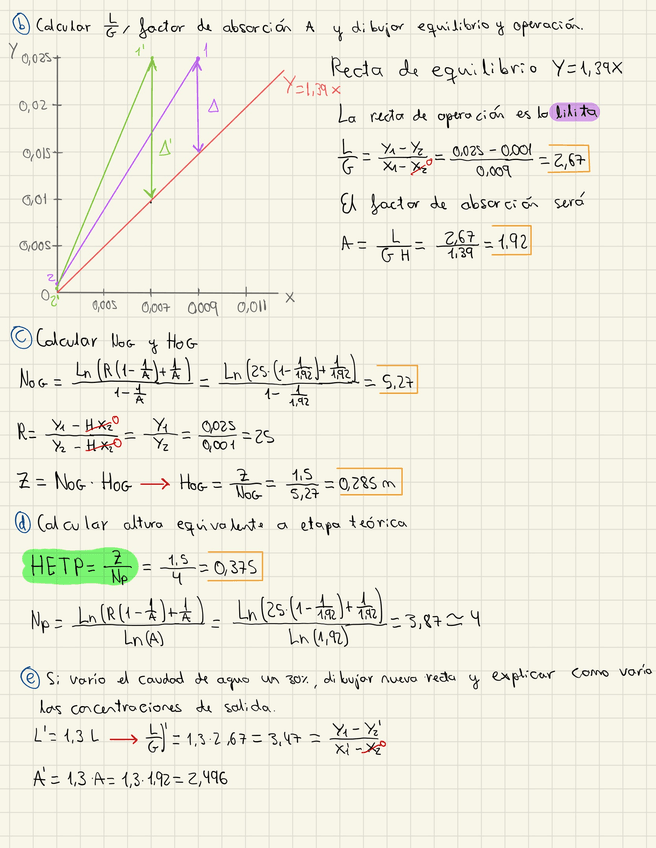 b) Calcular L/G, factor de absorción A y dibujar equilibrio y operación.
Y
0,025
0,02
0,015
0,01
0,005
0
1'
1
Δ
Δ'
Y=1,39x
2
2'
0,005 0,007 0,009 0,011 X
Recta de equilibrio Y=1,39X
La recta de operación es la lilita
L/G = (Y1 - Y2)/(X1 - X2) = (0,025 - 0,001)/0,009 = 2,67
0
El factor de absorción será
A = L/(G H) = 2,67/1,39 = 1,92
c) Calcular NOG y HOG
NOG = Ln(R(1-1/A)+1/A)/(1-1/A) = Ln(25·(1-1/1,92)+1/1,92)/(1-1/1,92) = 5,27
R = (Y1 - HX2)/(Y2 - HX2) = Y1/Y2 = 0,025/0,001 = 25
0
0
Z = NOG · HOG → HOG = Z/NOG = 1,5/5,27 = 0,285 m
d) Calcular altura equivalente a etapa teórica
HETP = Z/Np = 1,5/4 = 0,375
Np = Ln(R(1-1/A)+1/A)/Ln(A) = Ln(25·(1-1/1,92)+1/1,92)/Ln(1,92) = 3,87 ≃ 4
e) Si varío el caudad de agua un 30%, dibujar nueva recta y explicar como varía
las concentraciones de salida.
L' = 1,3 L → L/G)' = 1,3·2,67 = 3,47 = (Y1 - Y2')/(X1' - X2)
0
A' = 1,3·A = 1,3·1,92 = 2,496